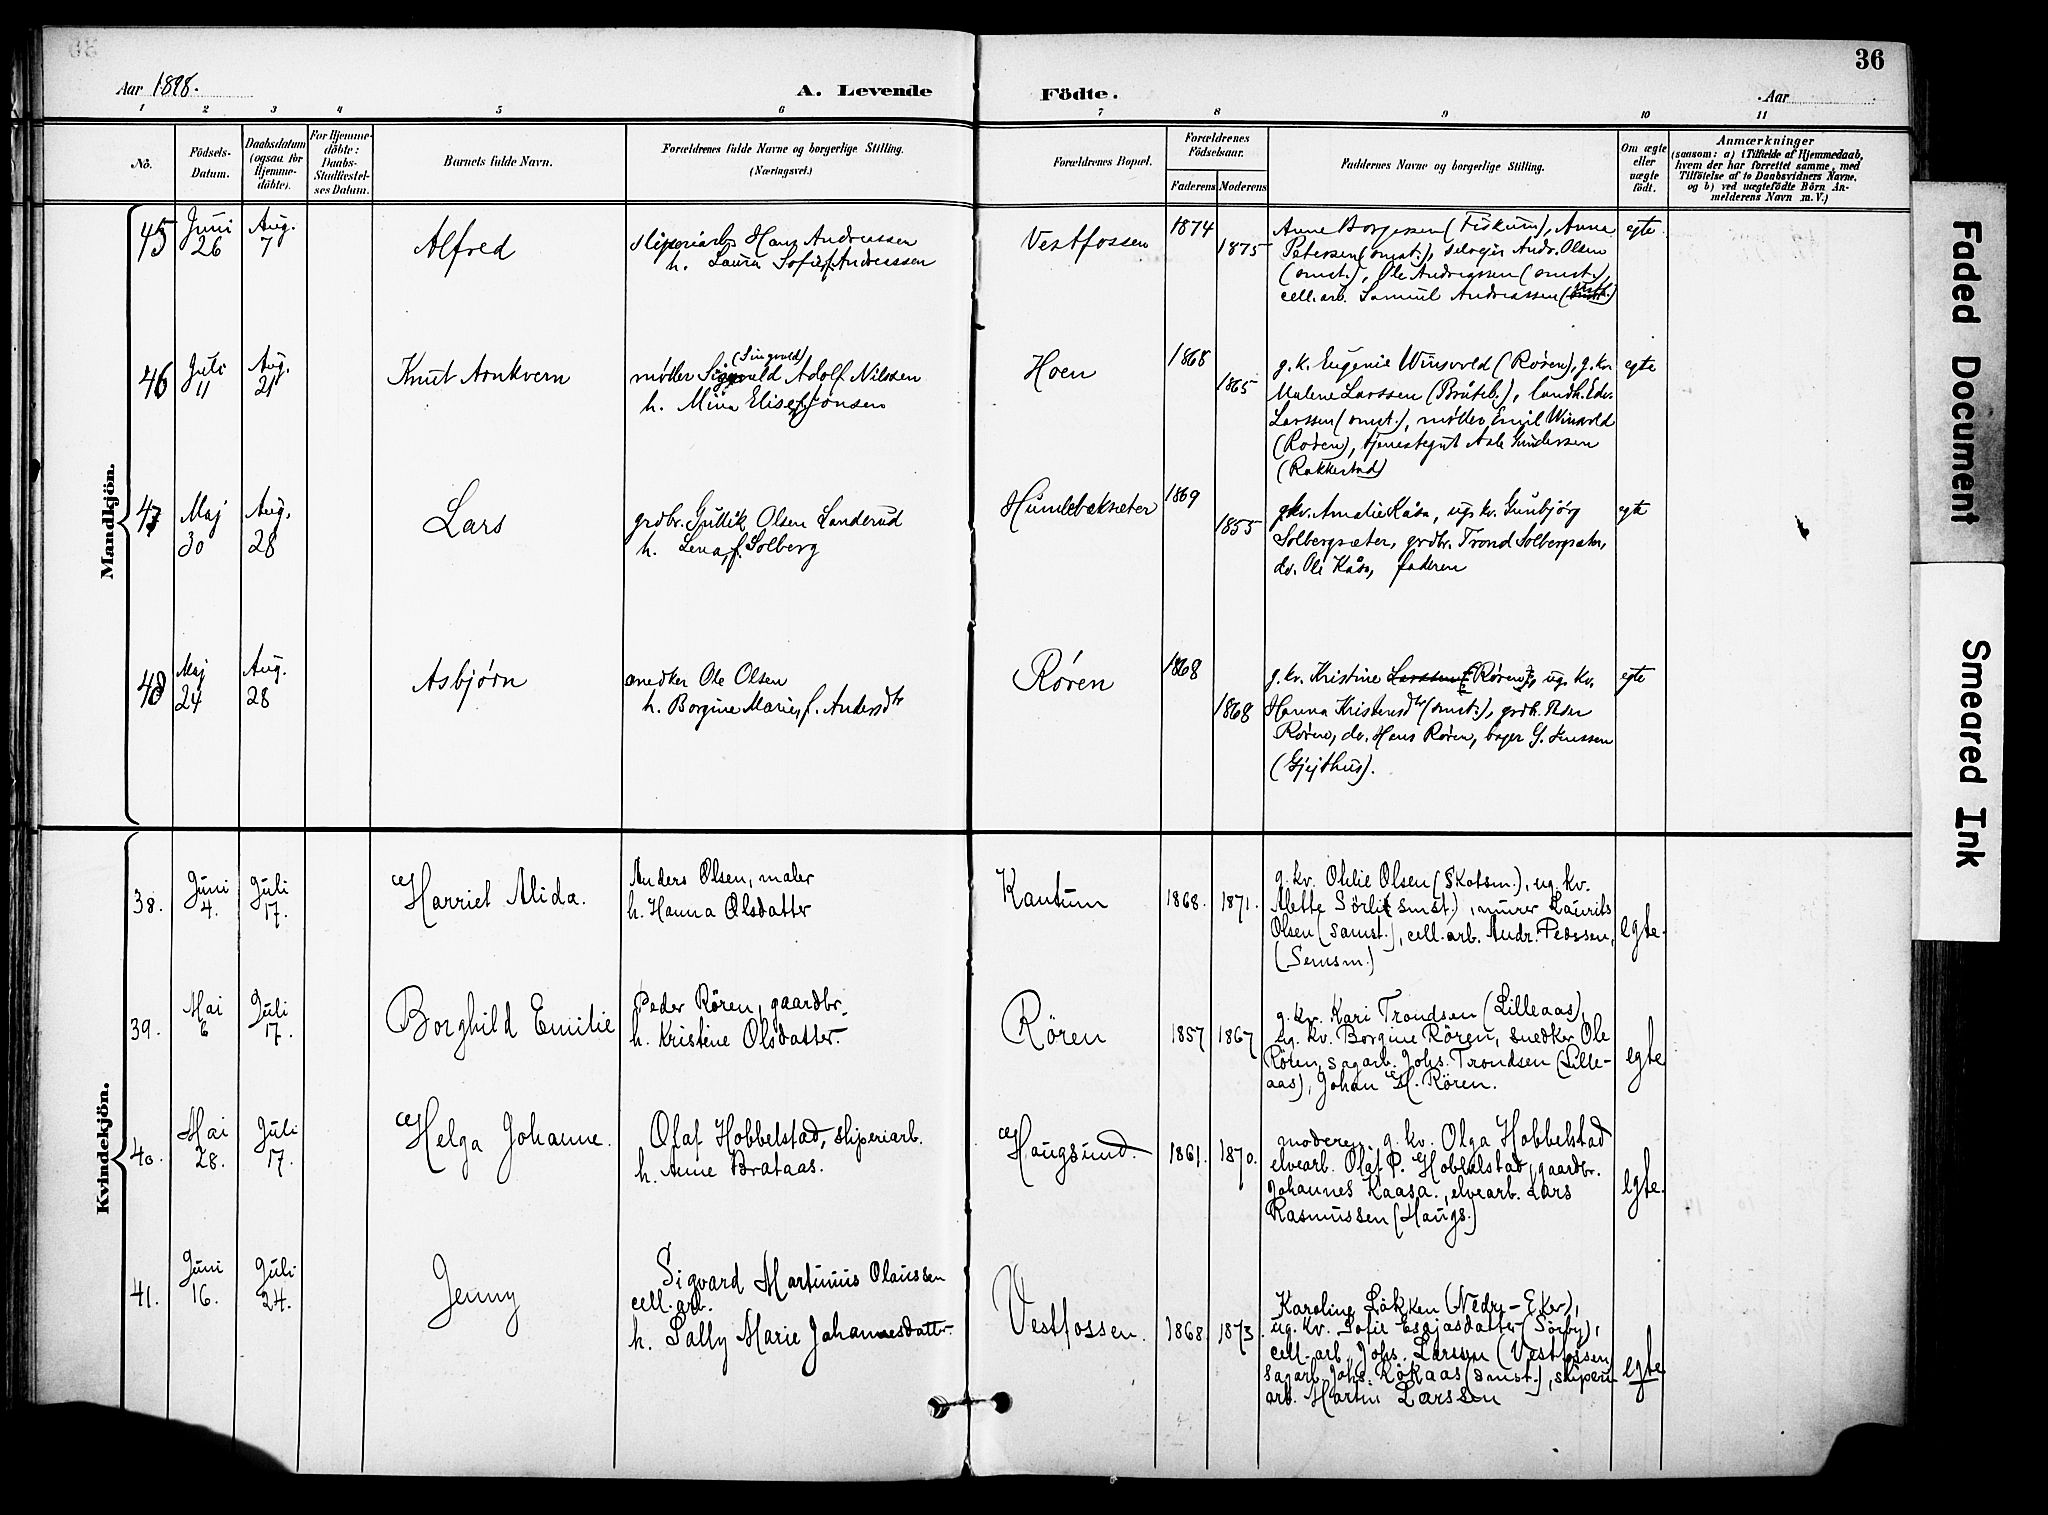 36
Aar 1898.
A. Levende Födte.
Aar
1 2 3 4 5 6 7 8 9 10 11
No.
Födsels-Datum.
Daabsdatum (ogsaa for Hjemme-döbte).
For Hjemme-döbte: Daabs-Stadfestel-ses Datum.
Barnets fulde Navn.
Forældrenes fulde Navne og borgerlige Stilling.
(Næringsvei.)
Forældrenes Bopæl.
Forældrenes Födselsaar.
Faderens Moderens
Faddernes Navne og borgerlige Stilling.
Om ægte eller uægte födt.
Anmærkninger
(saasom: a) i Tilfælde af Hjemmedaab,
hvem der har forrettet samme, med
Tilföielse af to Daabsvidners Navne,
og b) ved uægtefödte Börn An-
melderens Navn m. V.)
Mandkjön.
45 Juni 26 Aug. 7 Alfred
sliperiarb. Hans Andreassen
h. Laura Sofie f. Andreassen
Vestfossen 1874 1875
Anne Borgersen (Fiskum), Anna
Petersen (omst.), selvejer Andr. Olsen
(omst.), Ole Andreassen (omst.),
cell. arb. Samuel Andreassen
egte
46 Juli 11 Aug. 21 Knut Arnkvern
(Singvald)
møller Sigvald Adolf Nilssen
h. Mina Elise f. Jonsen
Hoen 1868 1865
g. k. Eugenie Winsvold (Røren), g. kv.
Malene Larssen (Bråteb.), landh. Edv.
Larssen (omst.), møller Emil Winsvold
(Roren), tjenestegut Asle Gundersen
(Rakkestad)
egte
47 Maj 30 Aug. 28 Lars
grdbr. Gullik Olsen Landerud
h. Lena, f. Solberg
Humlebæksæter 1869 1855
gkv. Amalie Kåsa, ug. kv. Gunbjørg
Solbergsæter, grdbr. Trond Solbergsæter,
do. Ole Kåsa, faderen
egte
48 Maj 24 Aug. 28 Asbjørn
snedker Ole Olsen
h. Borgine Marie, f. Andersdtr
Røren 1868 1868
g. kv. Kristine Larssen (Røren), ug. kv.
Hanna Kristensdtr (omst.), grdb. Peder
Røren, do. Hans Røren, bager G. Jenssen
(Gjejthus).
egte
Kvindekjön.
38. Juni 4. Juli 17. Harriet Alida.
Anders Olsen, maler
h. Hanna Olsdatter
Kantum 1868. 1871.
g. kv. Ohlie Olsen (Skotsm.), ug. kv.
Alette Sörli (smst.), murer Laurits
Olsen (samst.), cell. arb. Andr. Pedssen,
(Semsm.)
egte.
39. Mai 6 Juli 17. Borghild Emilie
Peder Rören, gaardbr.
h. Kristine Olsdatter.
Rören 1857 1867
g. kv. Kari Trondsen (Lilleaas),
ug. kv. Borgine Rören, snedker Ole
Rören, sagarb. Johs. Trondsen (Lille-
aas), Johan H. Rören.
egte
40. Mai 28. Juli 17. Helga Johanne.
Olaf Hobbelstad, sliperiarb.
h. Anne Brataas.
Haugsund. 1861. 1870.
moderen, g. kv. Olga Hobbelstad
elvearb. Olaf P. Hobbelstad, gaardbr.
Johannes Kaasa., elvearb. Lars
Rasmussen (Haugs.)
egte.
41. Juni 16. Juli 24. Jenny
Sigvard Martinius Olaussen
cell. arb.
h. Sally Marie Johannesdatter.
Vestfossen. 1868 1873.
Karoline Lökken (Nedre-Eker),
ug. kv. Sofie Esajasdatter (Sörby),
cell. arb. Johs. Larssen (Vestfossen)
sagarb. Johs. Rökaas (smst.), sliperi-
arb. Martin Larssen
egte
Faded Document
Smeared Ink